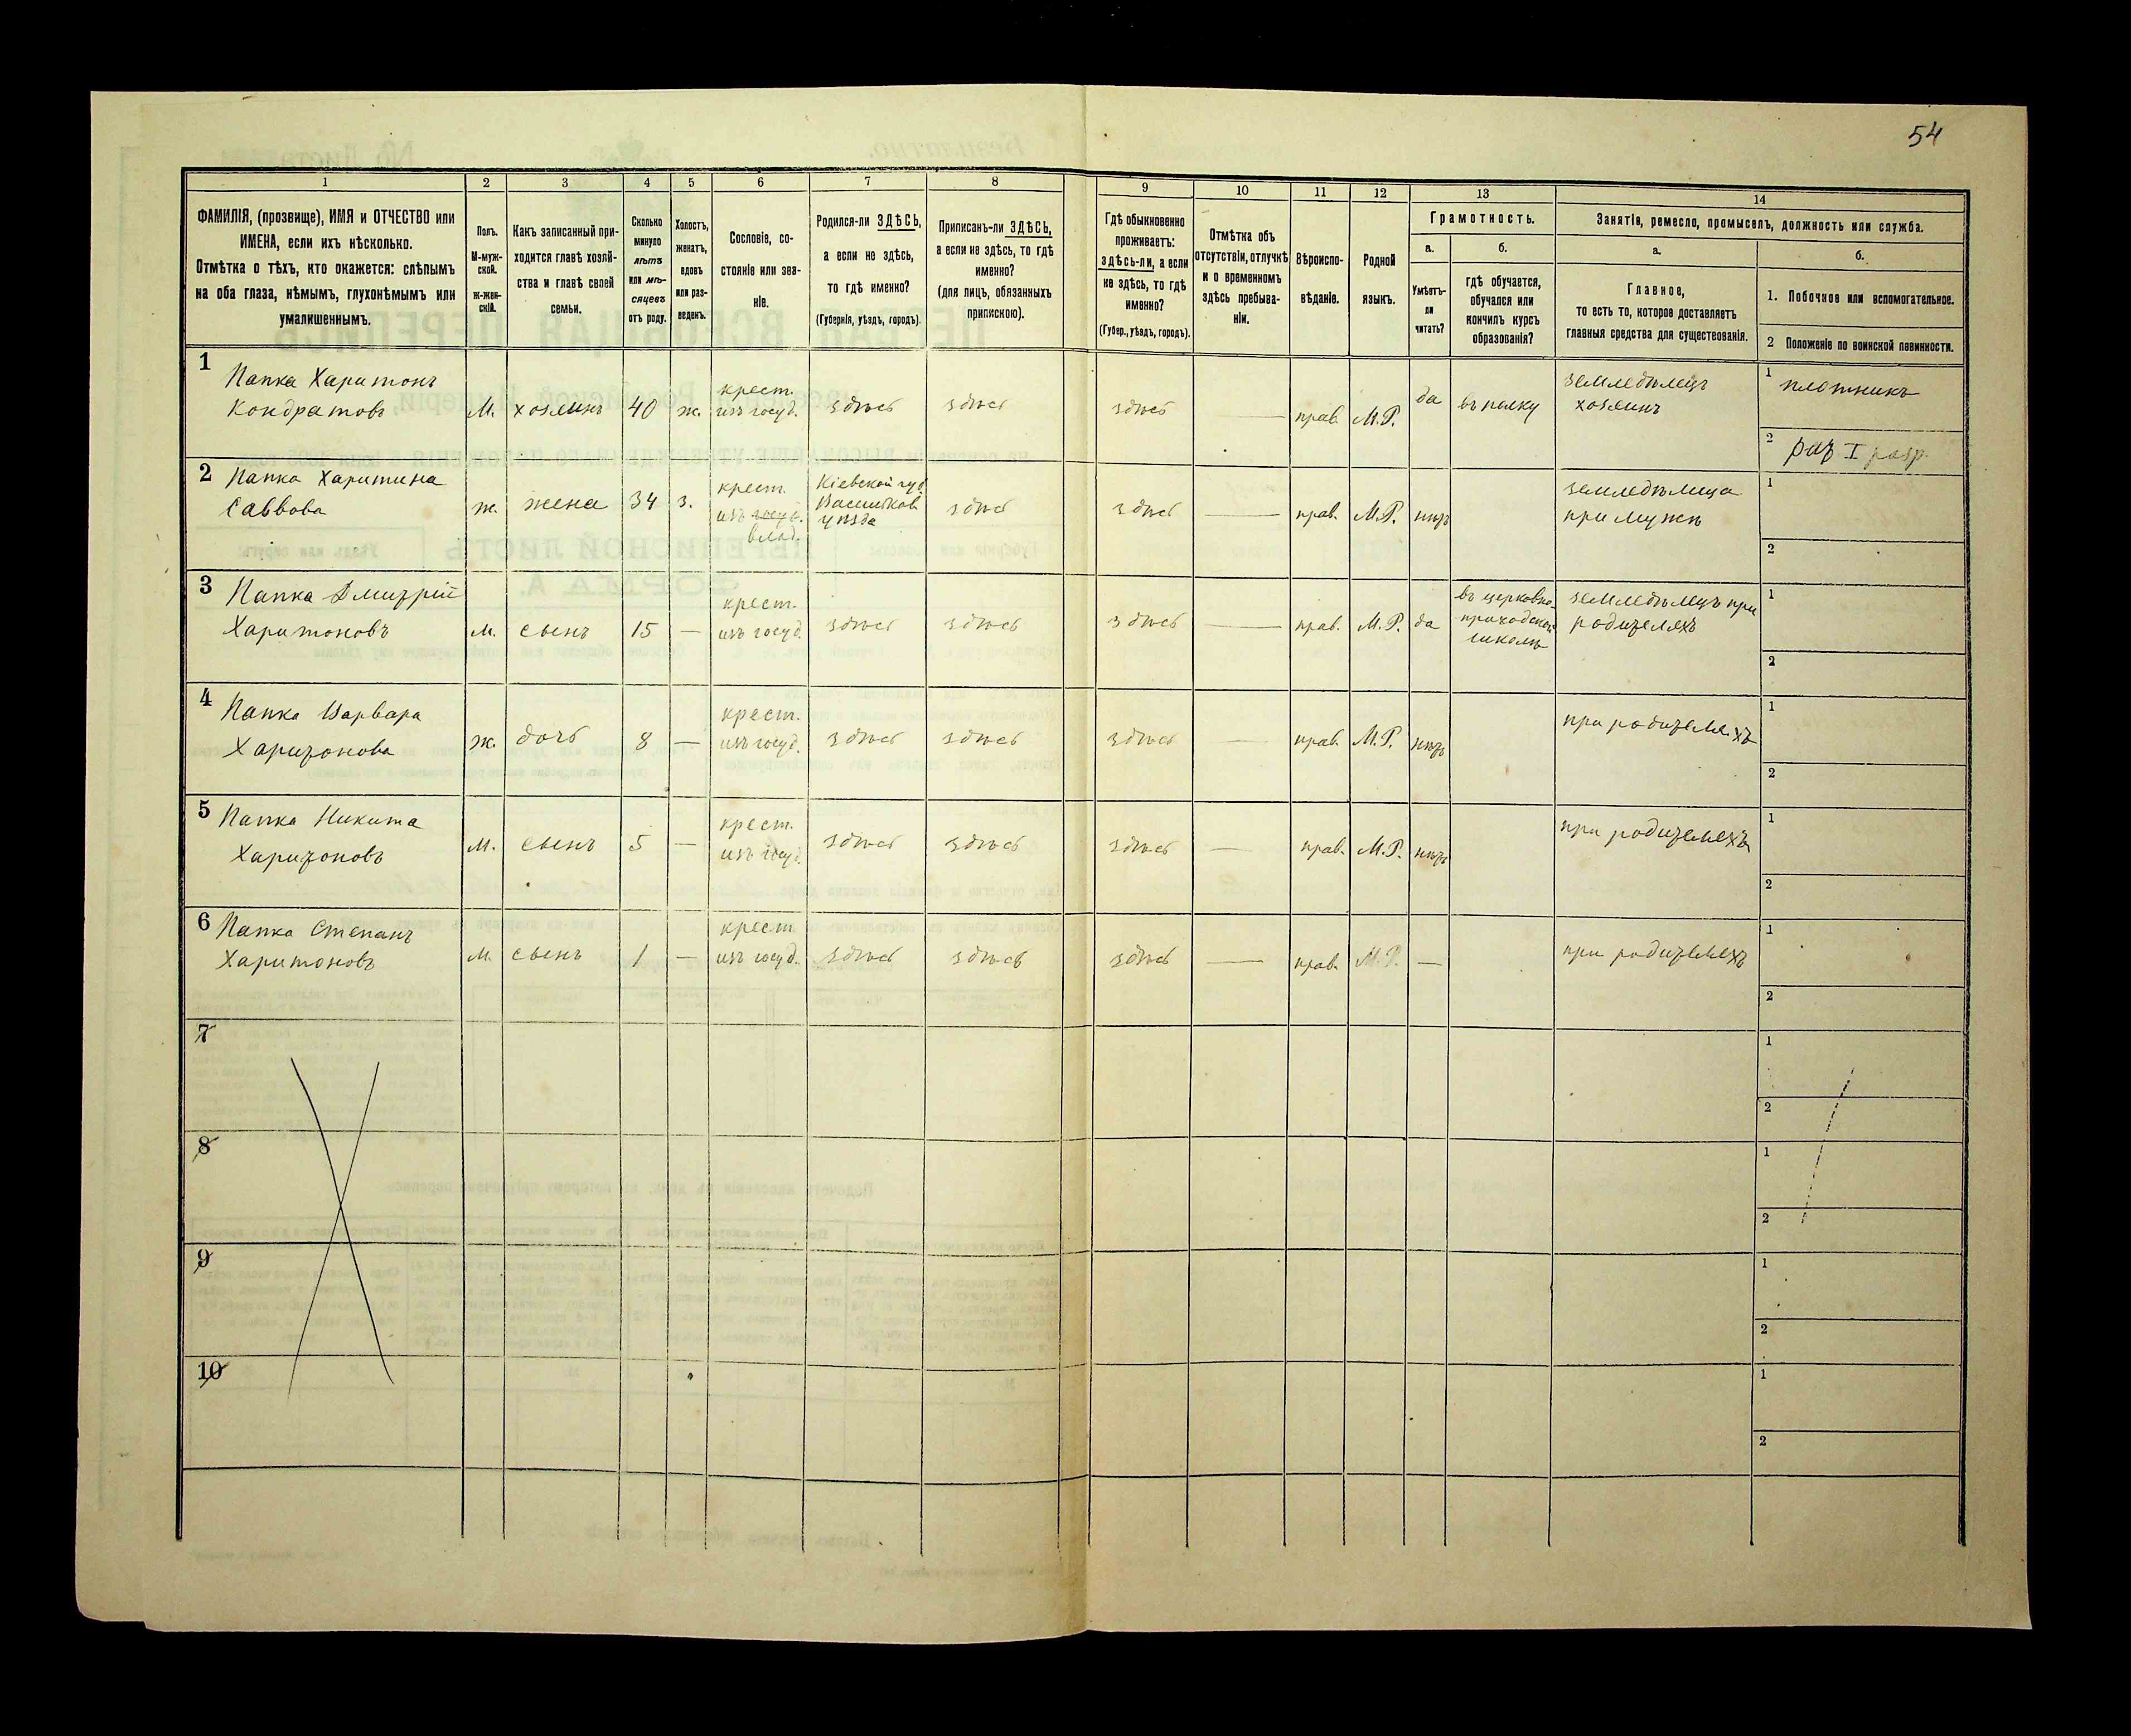 54
1 2 3 4 5 6 7 8 9 10 11 12 13 14
ФАМИЛІЯ, (прозвище), ИМЯ и ОТЧЕСТВО или
ИМЕНА, если ихъ нѣсколько.
Отмѣтка о тѣхъ, кто окажется: слѣпымъ
на оба глаза, нѣмымъ, глухонѣмымъ или
умалишеннымъ.
Полъ.
М-муж-
ской.
Ж-жен-
скій.
Какъ записанный при-
ходится главѣ хозяй-
ства и главѣ своей
семьи.
Сколько
минуло
лѣтъ
или мѣ-
сяцевъ
отъ роду.
Холостъ,
женатъ,
вдовъ
или раз-
веденъ.
Сословіе, со-
стояніе или зва-
ніе.
Родился-ли ЗДѢСЬ,
а если не здѣсь,
то гдѣ именно?
(Губернія, уѣздъ, городъ).
Приписанъ-ли ЗДѢСЬ,
а если не здѣсь, то гдѣ
именно?
(для лицъ, обязанныхъ
припискою).
Гдѣ обыкновенно
проживаетъ:
здѣсь-ли, а если
не здѣсь, то гдѣ
именно?
(Губер., уѣздъ, городъ).
Отмѣтка объ
отсутствіи, отлучкѣ
и о временномъ
здѣсь пребыва-
ніи.
Вѣроиспо-
вѣданіе.
Родной
языкъ.
Грамотность.
а.
Умѣетъ-
ли
читать?
б.
гдѣ обучается,
обучался или
кончилъ курсъ
образованія?
Занятіе, ремесло, промыселъ, должность или служба.
а.
Главное,
то есть то, которое доставляетъ
главныя средства для существованія.
б.
1. Побочное или вспомогательное.
2 Положеніе по воинской повинности.
1 Папка Харитонъ
Кондратовъ
М. хозяинъ 40 ж.
крест.
изъ госуд.
здѣсь здѣсь здѣсь — прав. М.Р. да въ полку
земледѣлецъ
хозяинъ
1 плотникъ
2 рат I разр.
2 Папка Харитина
Саввова
ж. жена 34 з.
крест.
изъ госуд.
влад.
Кіевской губ
Васильков
уѣзда
здѣсь здѣсь — прав. М.Р. нѣтъ
земледѣлица
при мужѣ
1
2
3 Папка Дмитрій
Харитоновъ
М. сынъ 15 —
крест.
изъ госуд.
здѣсь здѣсь здѣсь — прав. М.Р. да
въ церковно-
приходской
школѣ
земледѣлецъ при
родителяхъ
1
2
4 Папка Варвара
Харитонова
ж. дочь 8 —
крест.
изъ госуд.
здѣсь здѣсь здѣсь — прав. М.Р. нѣтъ
при родителяхъ
1
2
5 Папка Никита
Харитоновъ
М. сынъ 5 —
крест.
изъ госуд.
здѣсь здѣсь здѣсь — прав. М.Р. нѣтъ
при родителяхъ
1
2
6 Папка Степанъ
Харитоновъ
М. сынъ 1 —
крест
изъ госуд.
здѣсь здѣсь здѣсь — прав. М.Р. —
при родителяхъ
1
2
7
1
2
8
1
2
9
1
2
10
1
2